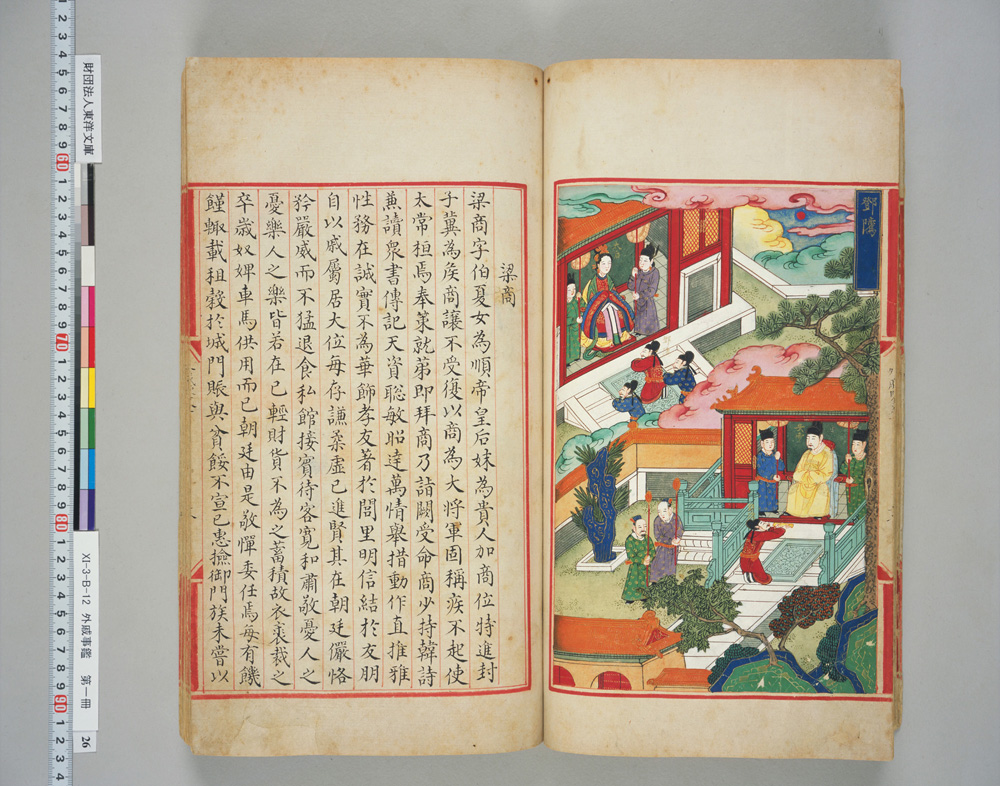 鄧隲
梁商
梁商字伯夏女為順帝皇后妹為貴人加商位特進封
子冀為侯商讓不受復以商為大將軍固稱疾不起使
太常桓焉奉策就第即拜商乃詣闕受命商少持韓詩
兼讀衆書傳記天資聰敏昭達萬情舉措動作直推雅
性務在誠實不為華飾孝友著於閭里明信結於友朋
自以戚屬居大位每存謙柔虛己進賢其在朝廷儼恪
矜嚴威而不猛退食私館接賓待客寬和肅敬憂人之
憂樂人之樂皆若在己輕財貨不為之蓄積故衣裘裁之
卒歲奴婢車馬供用而已朝廷由是敬憚委任焉每有饑
饉輒載租穀於城門賑與貧餒不宣己惠撿御門族未嘗以
財団法人東洋文庫
XI-3-B-12 外戚事鑑 第一冊 26
2 3 4 5 6 7 8 9 60 1 2 3 4 5 6 7 8 9 70 1 2 3 4 5 6 7 8 9 80 1 2 3 4 5 6 7 8 9 90 1 2 3 4